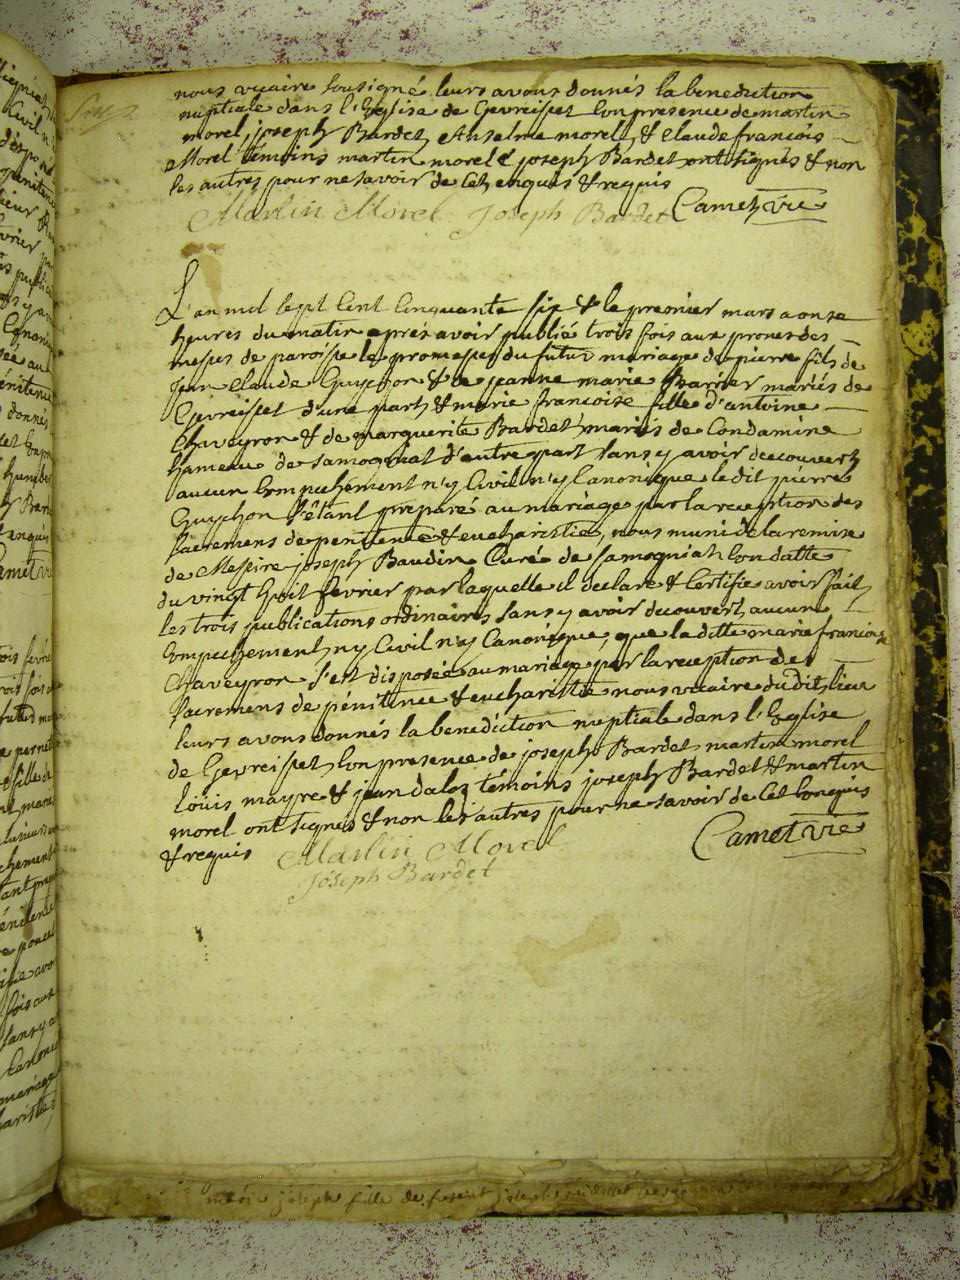 nous vicaire sousigné leurs avons donnés la benediction
nuptiale dans l'Eglise de Gevreisset Conpresence de martin
morel joseph Bardet, Anselme morel, & claude francois
Morel témoins martin morel & joseph Bardet ont signés & non
les autres pour ne savoir de cet enquis & requis
Martin Morel Joseph Bardet Camet vie
L'an mil sept Cent Cinquante six & le premier mars a onze
heures du matin aprés avoir publié trois fois aux prones des
messes de paroisse les promesses du futur mariage de pierre fils de
Jean Claude Guyphon & de jeanne marie Barrier mariés de
Gevreisset d'une part, & marie francoise fille d'antoine
Chaveyron & de marguerite Bardet mariés de Condamine
hameau de samogniat d'autre part sans y avoir decouvert
aucun Compechement n'y Civil n'y Canonique le dit pierre
Guyphon s'étant préparé au mariage par la reception des
sacremens de penitence & eucharistie, nous muni de la remise
de Messire joseph Baudin Curé de samogniat Con datte
du vingt huit février par laquelle il declare & Certifie avoir fait
les trois publications ordinaires sans y avoir decouvert aucun
Compechement n'y Civil n'y Canonique, que la ditte marie francoise
Chaveyron s'est disposée au mariage par la reception des
sacremens de pénitence & eucharistie nous vicaire du dit lieu
leurs avons donnés la benediction nuptiale dans l'Eglise
de Gevreisset, Conpresence de joseph Bardet martin morel
Loüis mayre & jean daloz témoins joseph Bardet & martin
morel ont signés & non les autres pour ne savoir de cet Conquis
& requis Martin Morel Camet vie
Joseph Bardet
joseph fille de